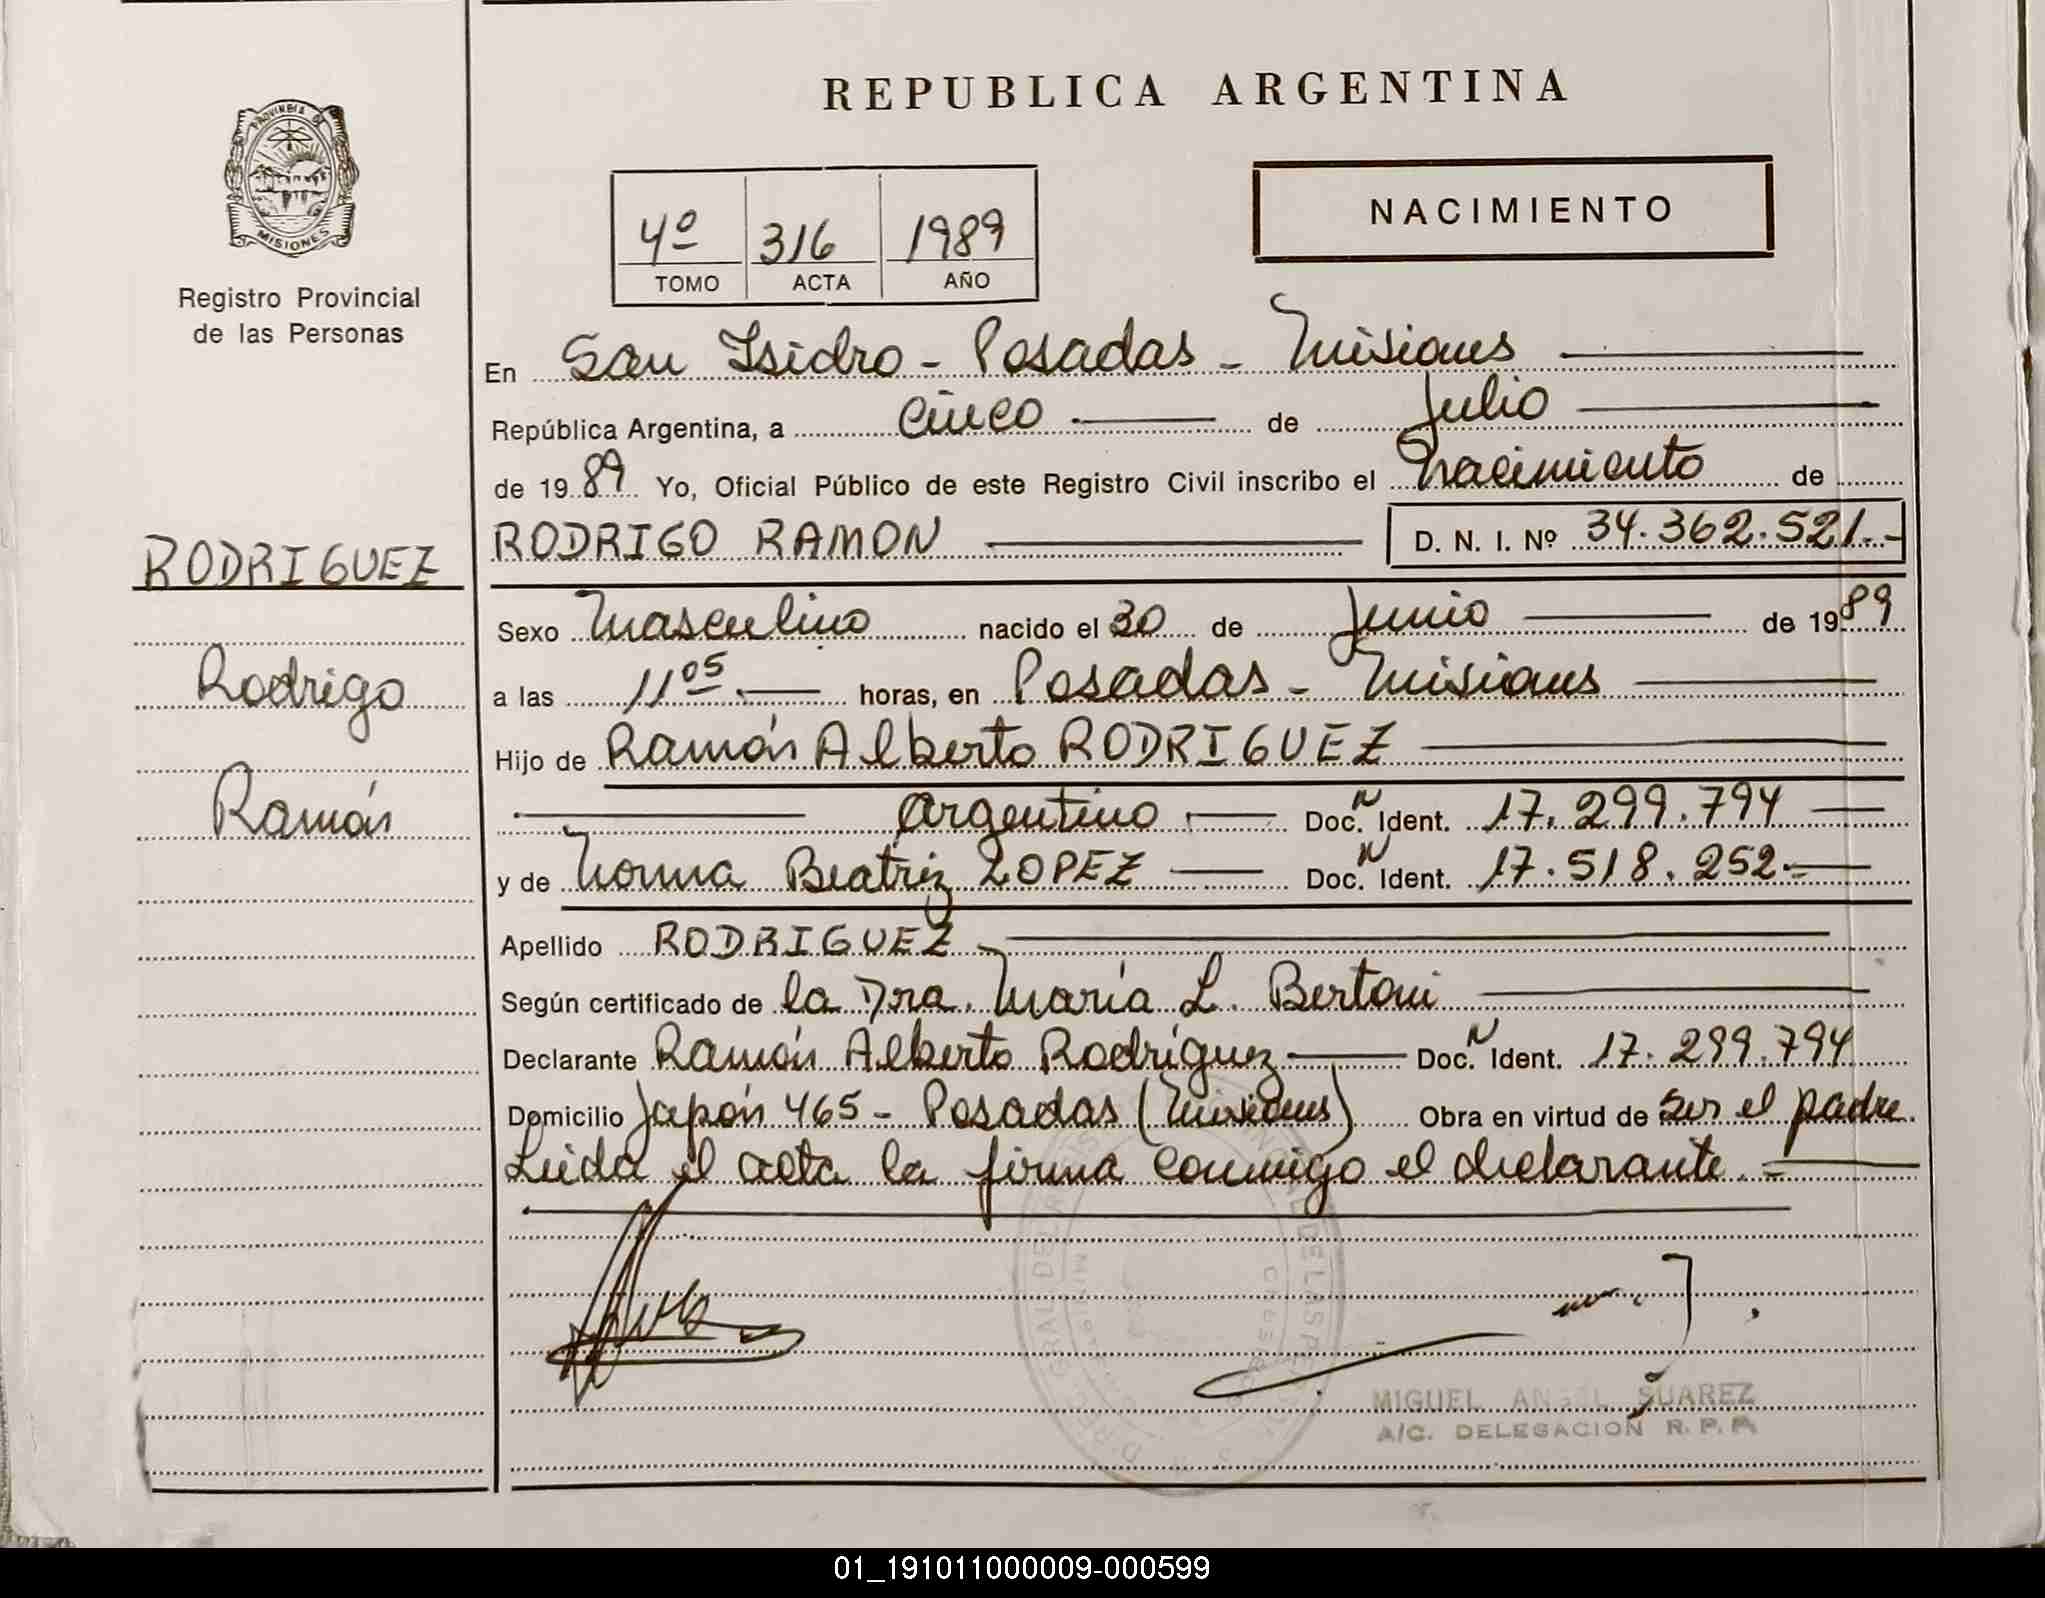 REPUBLICA ARGENTINA
PROVINCIA DE
MISIONES
Registro Provincial
de las Personas
4º 316 1989
TOMO ACTA AÑO
NACIMIENTO
En San Isidro - Posadas - Misiones
República Argentina, a cinco de Julio
de 1989 Yo, Oficial Público de este Registro Civil inscribo el nacimiento de
RODRIGO RAMON D. N. I. Nº 34.362.521.-
RODRIGUEZ
Rodrigo
Ramón
Sexo Masculino nacido el 30 de Junio de 1989
a las 11 05 horas, en Posadas - Misiones
Hijo de Ramón Alberto RODRIGUEZ
argentino Doc. N Ident. 17.299.794
y de Norma Beatriz LOPEZ Doc. N Ident. 17.518.252.-
Apellido RODRIGUEZ
Según certificado de la Dra. María L. Bertoni
Declarante Ramón Alberto Rodríguez Doc. N Ident. 17.299.794
Domicilio Japón 465 - Posadas (Misiones) Obra en virtud de ser el padre.
Leída el acta la firma conmigo el declarante.-
MIGUEL ANGEL SUAREZ
A/C. DELEGACION R. P. P.
01_191011000009-000599